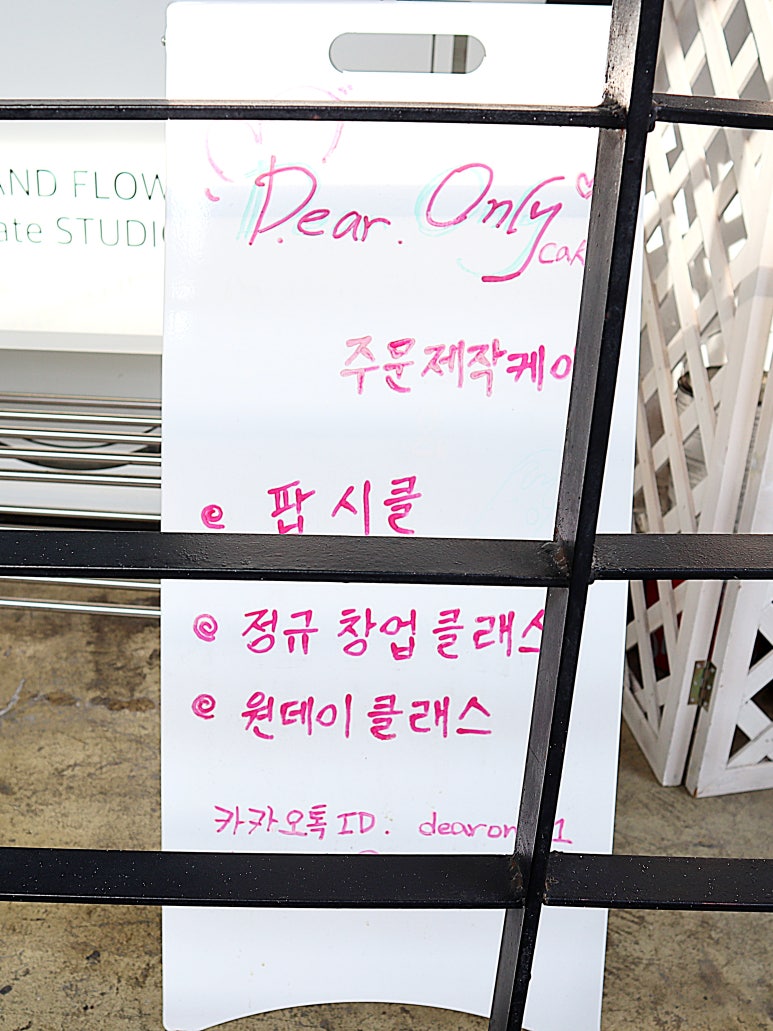 AND FLOW
ate STUDI
Dear. Only
cak
주문제작케이
팝시클
정규 창업 클래스
원데이 클래스
카카오톡 ID.